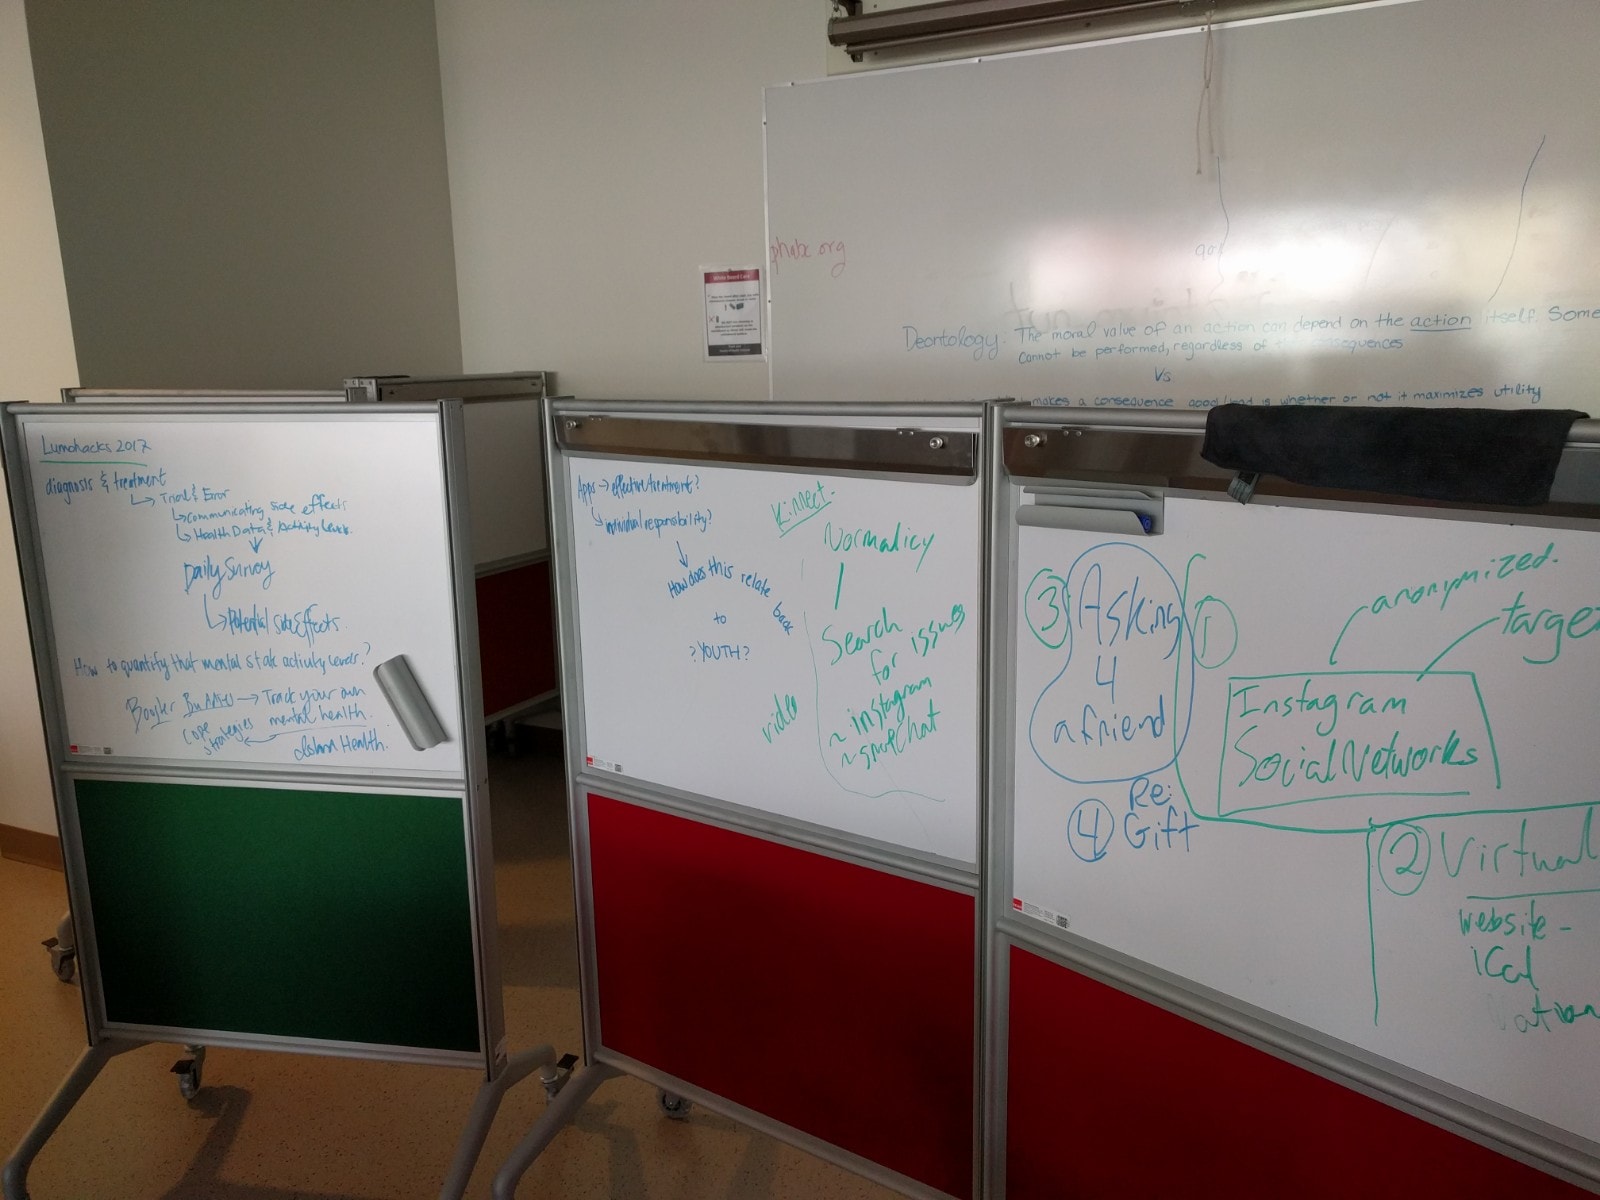 phabc.org
White Board Care
Deontology: The moral value of an action can depend on the action itself. Some
cannot be performed, regardless of consequences
Vs
makes a consequence good/bad is whether or not it maximizes utility
Lumohacks 2017
diagnosis & treatment
Trial & Error
communicating side effects
Health Data & Activity Levels.
Daily Survey
Potential Side Effects.
How to quantify that mental state activity levels?
Track your own
mental health.
cope
strategies
Health.
Apps → effective treatment?
individual responsibility?
How does this relate back
to
? YOUTH ?
Kinnect.
Normalicy
Search
for issues
~ instagram
~ snapchat
video
3
Asking
4
a friend
4
Re:
Gift
1
anonymized.
targe
Instagram
Social Networks
2
Virtual
website -
iCal